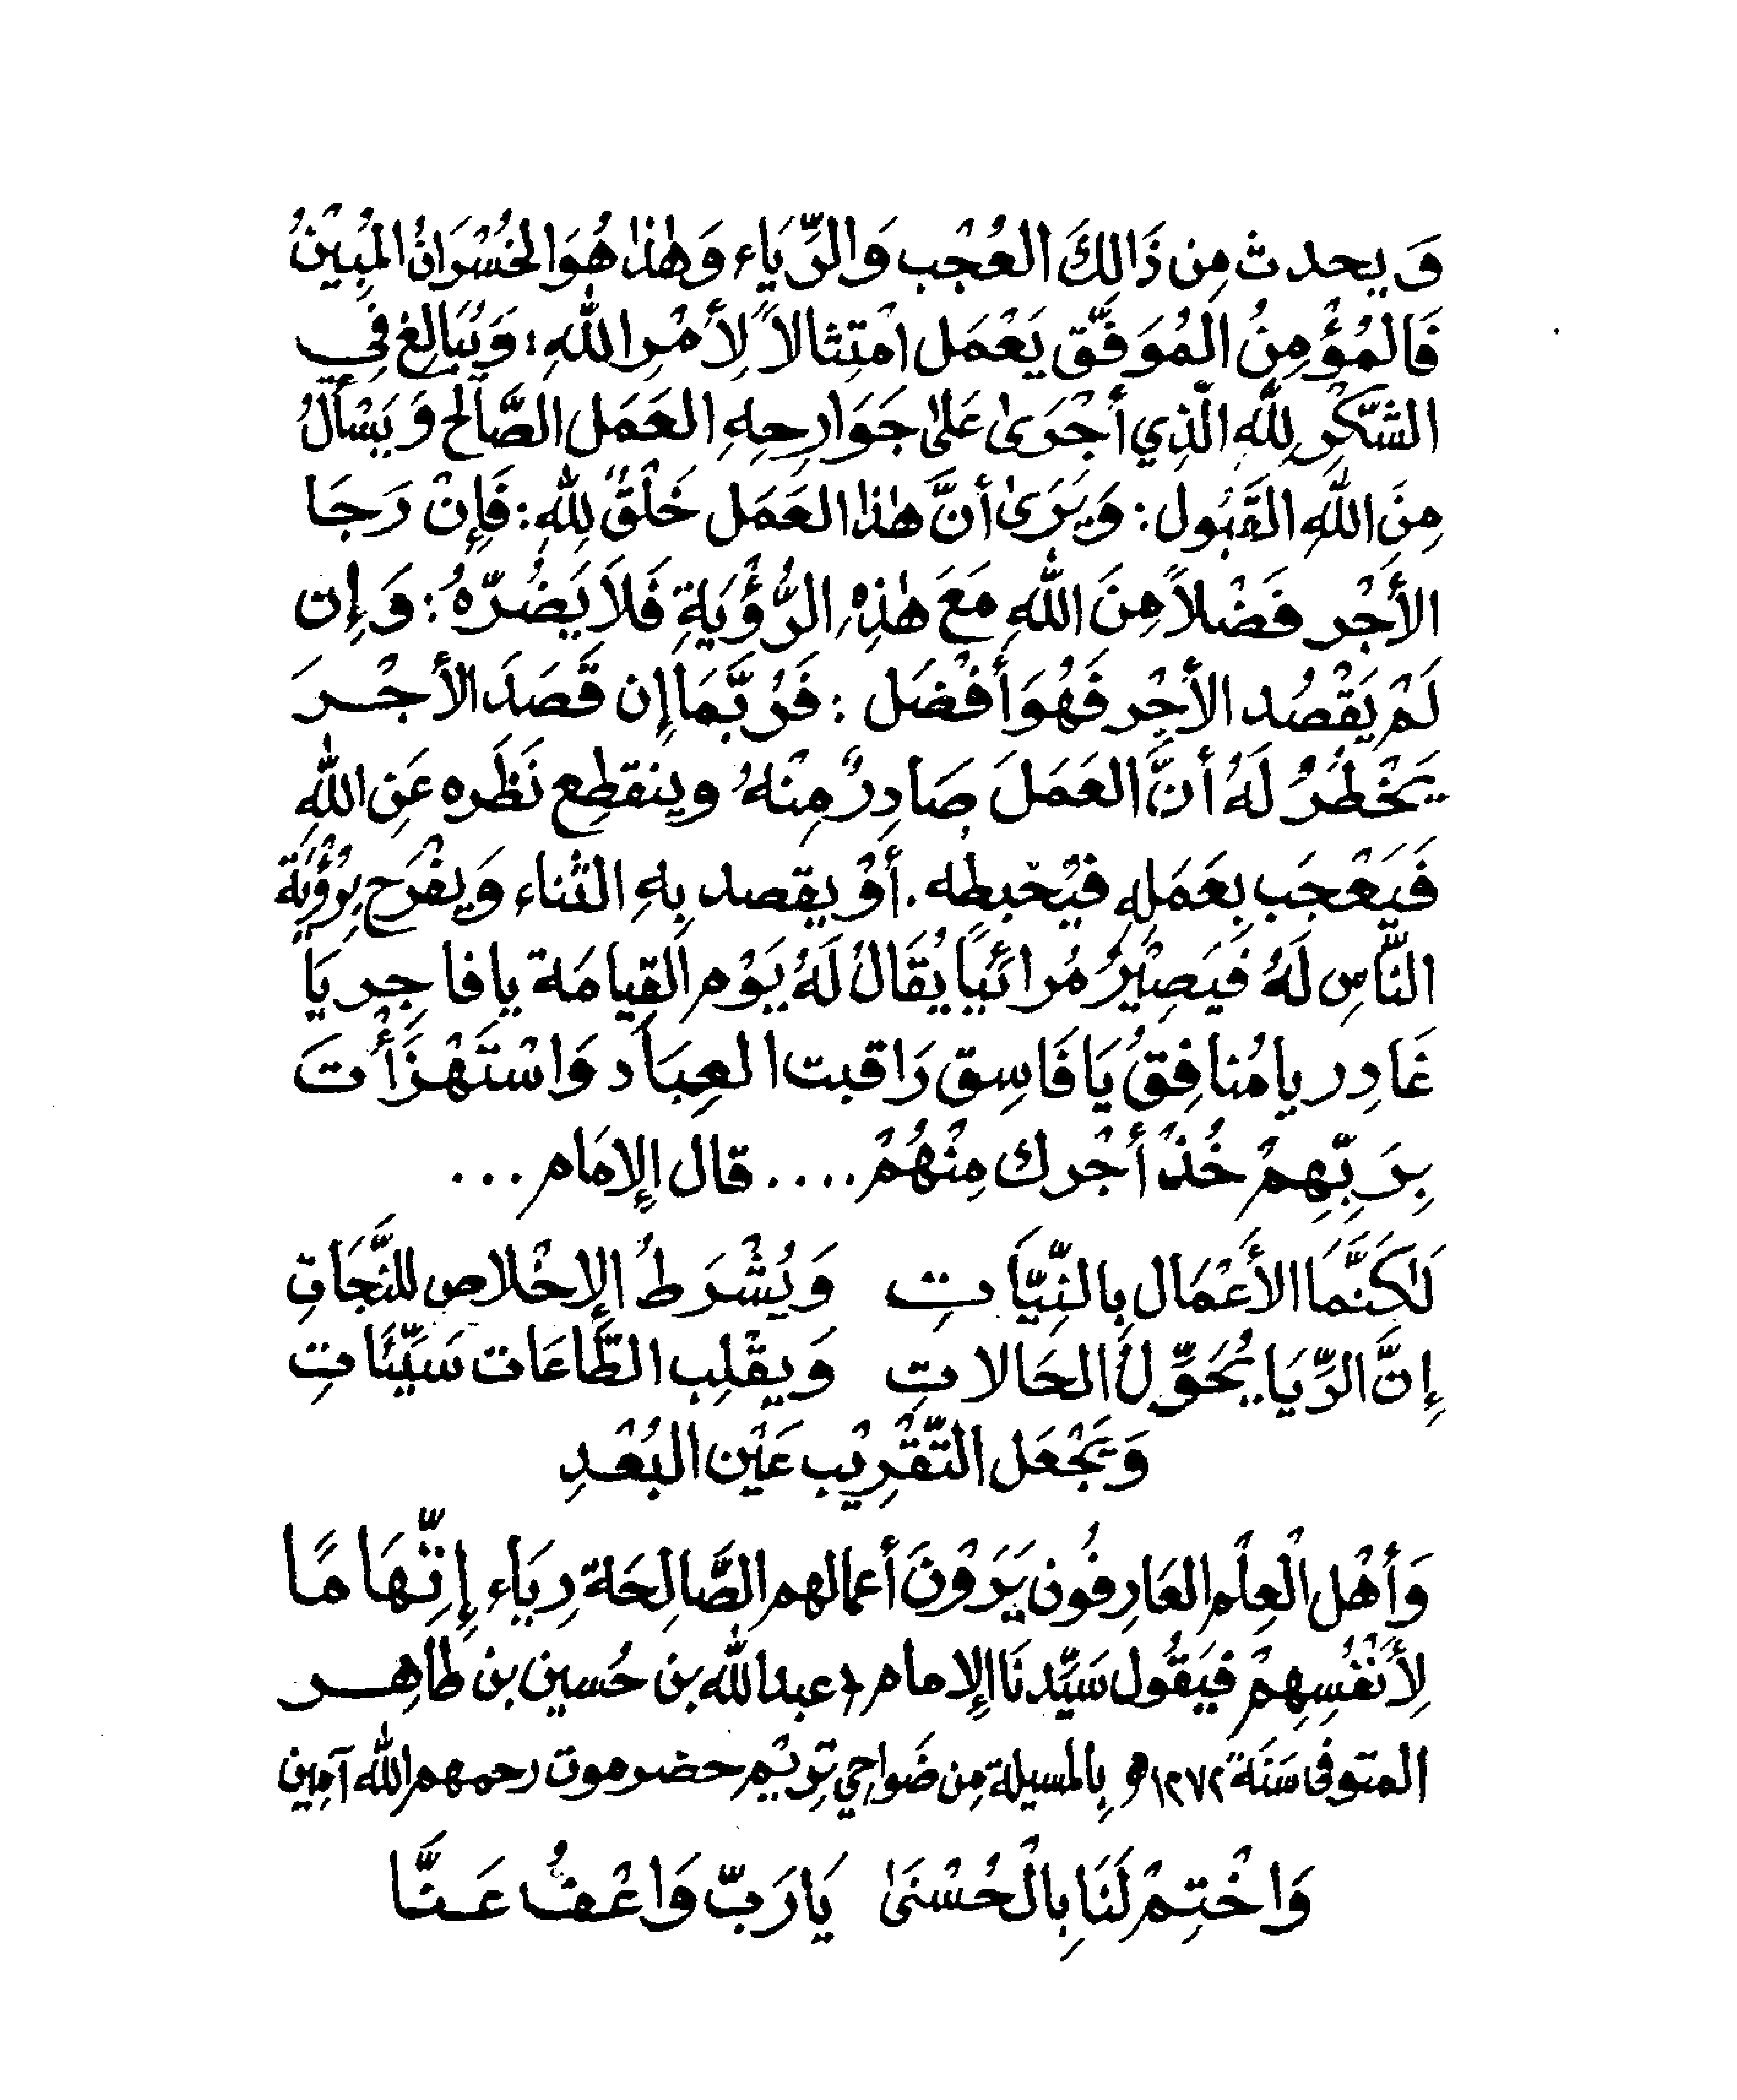 وَيحدث مِن ذَالِكَ العُجْب وَالرِّيَاء وَهٰذا هُوَ الخُسْرَانُ المُبِيْنُ
فَالمُؤْمِنُ المُوَفَّق يَعْمَل امْتِثالاً لِأَمْرِ اللهِ : وَيُبَالِغ فِي
الشَّكْرِ لِلّهِ الَّذِي أَجْرَىٰ عَلىٰ جَوَارِحِهِ العَمَل الصَّالح وَيَسْأَلُ
مِنَ اللهِ القَبُول : وَيَرَىٰ أنَّ هٰذا العَمَل خَلْقٌ لِلهِ : فَإِنْ رَجَا
الأَجْر فَضْلاً مِنَ اللهِ مَعَ هٰذِهِ الرُّؤْيَةِ فَلاَ يَضُرّهُ : وَإِن
لَمْ يَقْصُد الأجْر فَهُوَ أَفْضَل : فَرُبَّمَا إِن قَصَدَ الأَجْرَ
يَخْطُرُ لَهُ أنَّ العَمَلَ صَادِرٌ مِنْهُ وينقطِع نَظَره عَنِ اللهِ
فَيَعْجَب بِعَمَلِهِ فيُحْبطه . أَوْ يقصد بِهِ الثناء وَيفْرَح بِرُؤْيَة
النَّاسِ لَهُ فَيَصِيْرُ مُرائيًا يُقَالُ لَهُ يَوْم القِيامَة يا فاجِر يَا
غَادِر يا مُنافِقُ يَا فَاسِق رَاقبت العِبَاد وَاسْتَهْزَأْتَ
بِرَبِّهِمْ خُذْ أَجْرك مِنْهُمْ .... قال الإمَام ...
لَكِنَّمَا الأَعْمَال بِالنِّيَّاتِ وَيُشْرَطُ الإِخْلاص للنَّجَاتِ
إِنَّ الرِّيَا يُحَوِّلُ الحَالاتِ وَيقْلِب الطَّاعَات سَيِّئَاتِ
وَيَجْعَل التَّقْرِيْب عَيْن البُعْدِ
وَأَهْل الْعِلْم العَارِفُون يَرَوْنَ أعمالهم الصَّالِحَة رِيَاء إِتِّهَامًا
لِأَنْفُسِهِمْ فيَقُول سَيِّدنَا الإمام / عبدالله بن حُسين بن طَاهِر
المتوفى سَنَة ١٢٧٢هـ بِالمسيلة مِن ضَواحِي تِرِيْم حضرموت رحمهم الله آمِين
وَاخْتِمْ لَنَا بِالْحُسْنَىٰ يَارَبّ وَاعْفُ عَنَّا